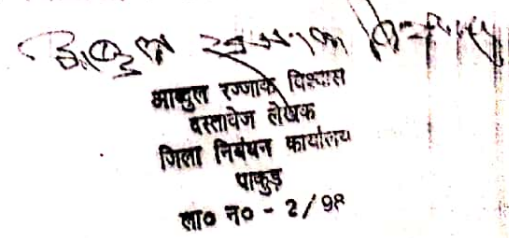 आब्दुल रज्जाक विश्वास
दस्तावेज लेखक
जिला निबंधन कार्यालय
पाकुड़
ला० न० - 2/98